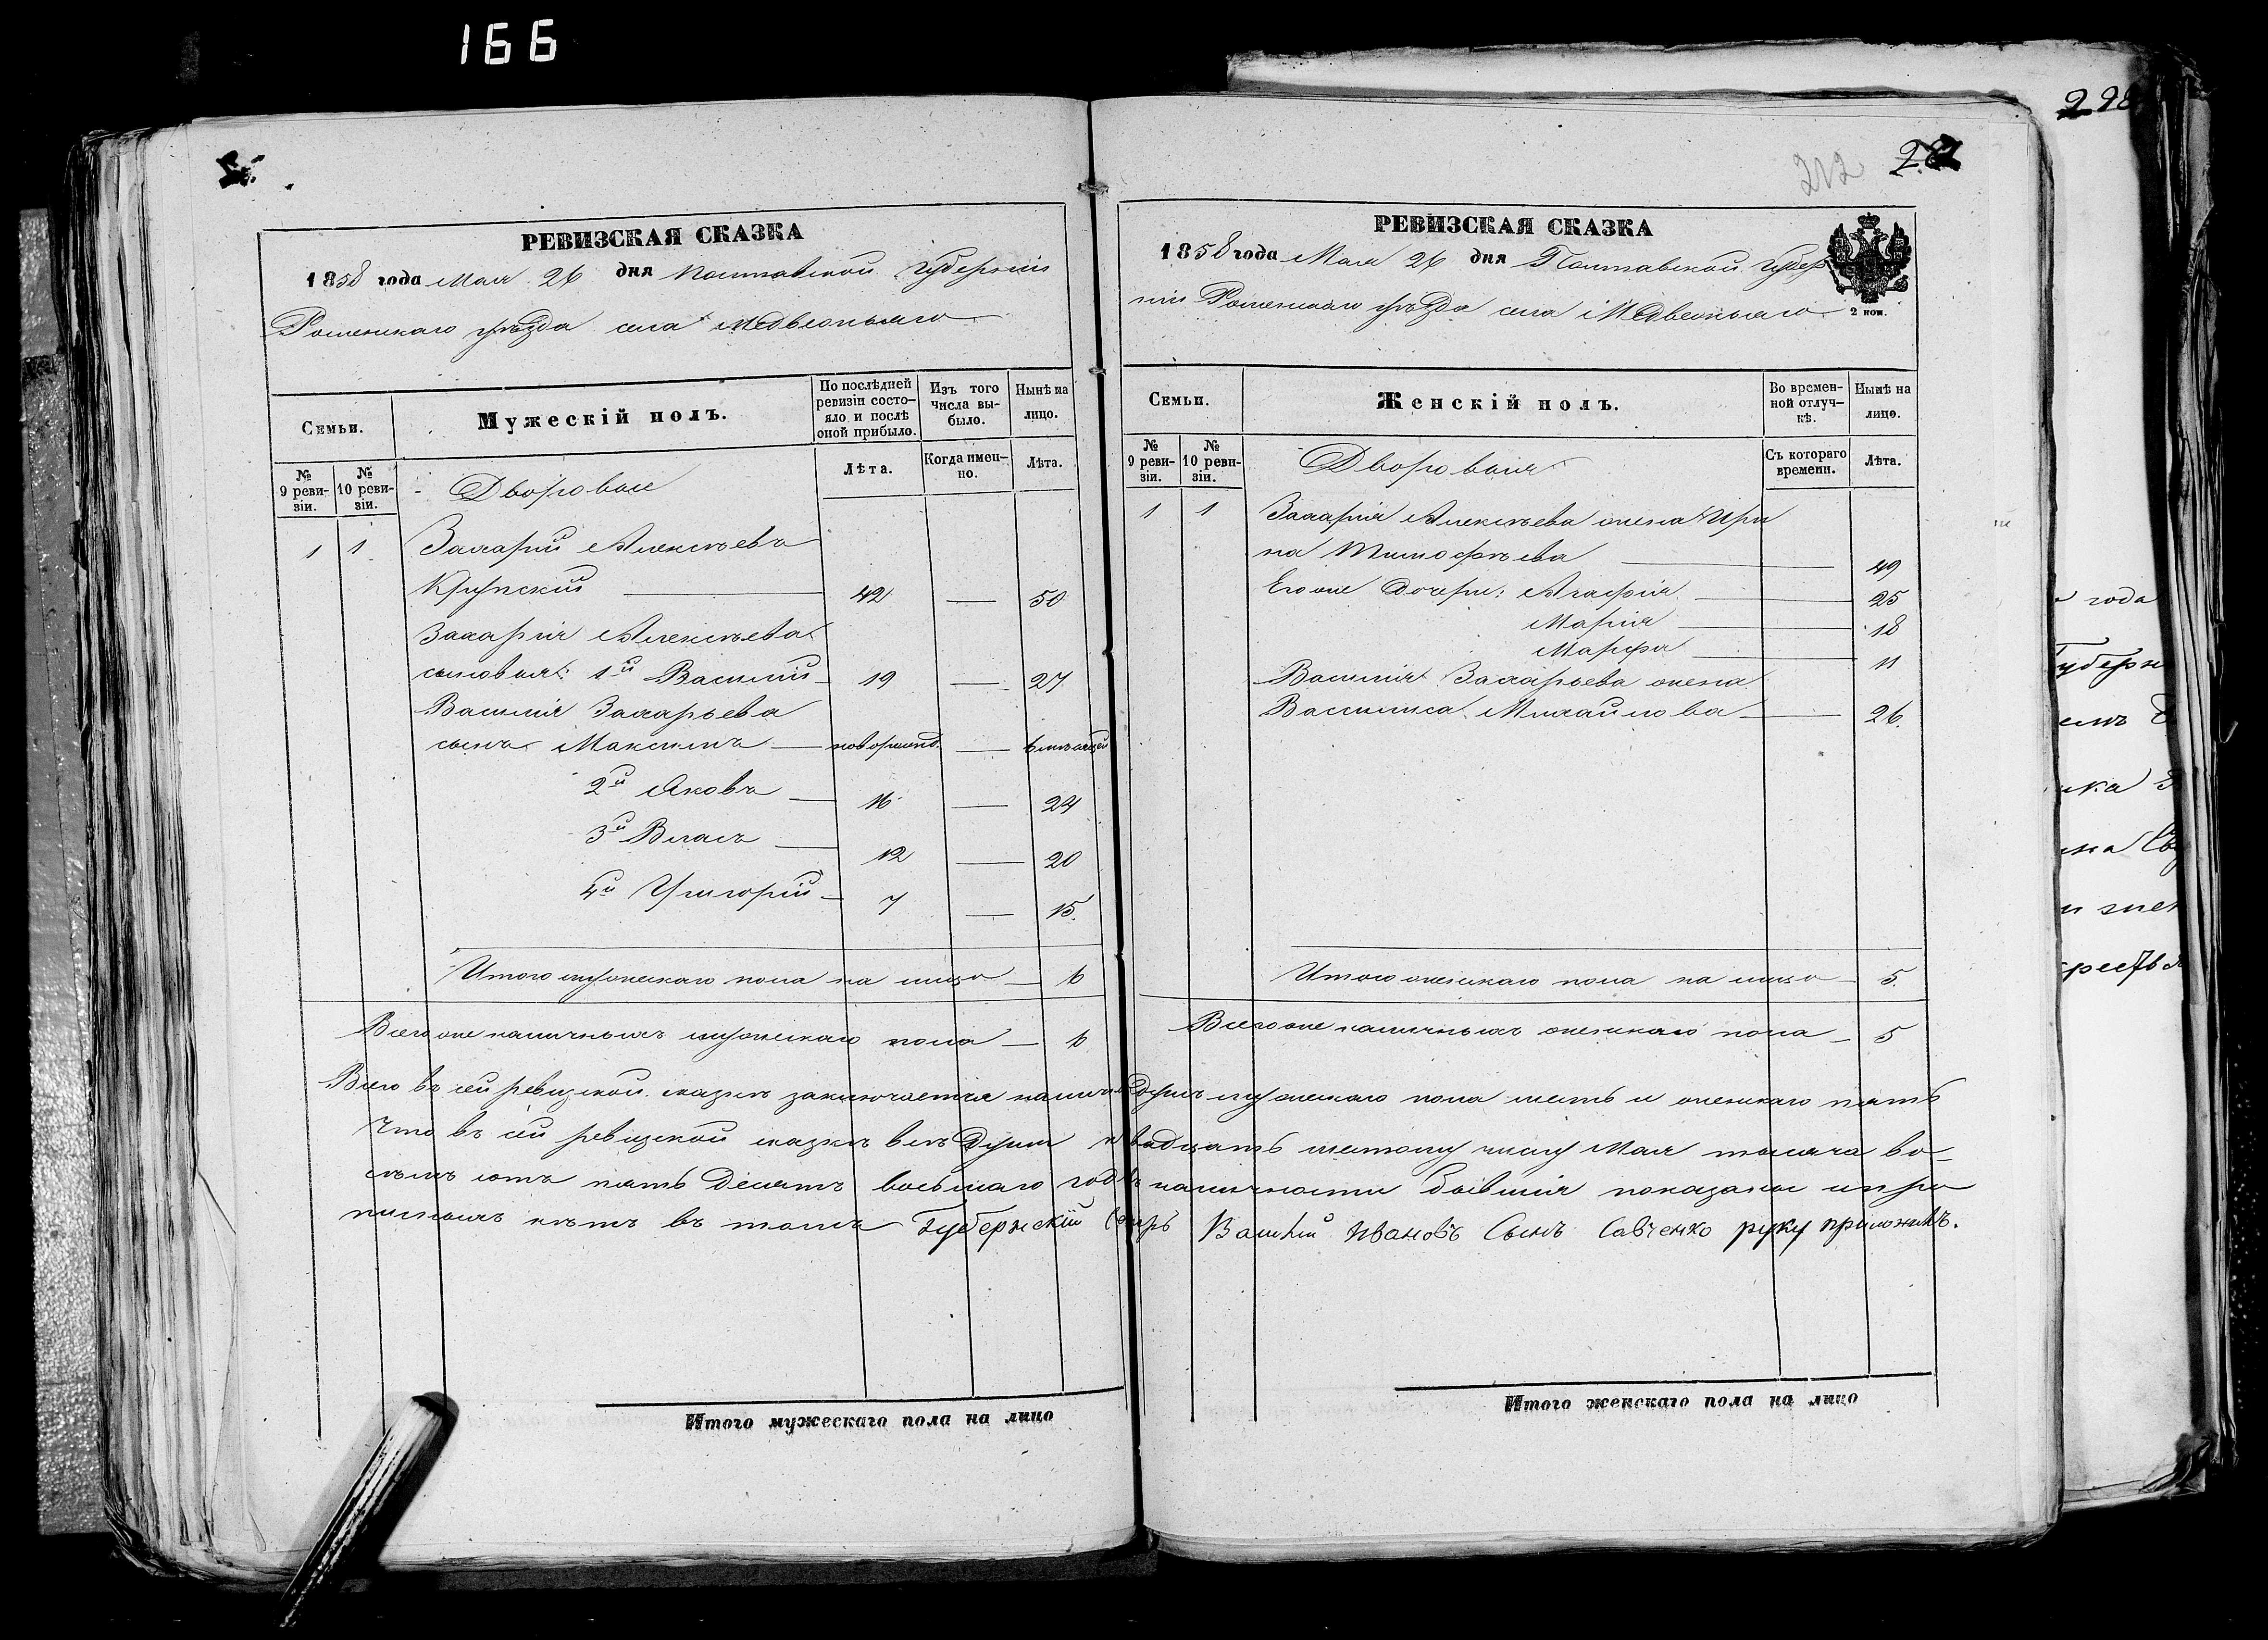 166
РЕВИЗСКАЯ СКАЗКА
1858 года Мая 26 дня Полтавской Губерніи
Роменскаго уѣзда села Медвежьяго
Семьи.
Мужескій полъ.
По послѣдней ревизіи состояло и послѣ оной прибыло.
Изъ того числа выбыло.
Нынѣ на лицо.
№ 9 ревизіи.
№ 10 ревизіи.
Дворовые
Лѣта.
Когда именно.
Лѣта.
1 1 Захарій Алексѣевъ
42 — 50
Захарія Алексѣева
сыновья: 1й Василій 19 — 27
Василія Захарьева
сынъ Максимъ — новорожд. —
2й Яковъ — 16 — 24
3й Власъ — 12 — 20
4й Григорій — 7 — 15.
Итого мужескаго пола на лицо — 6
Всего же наличныхъ мужескаго пола — 6
212
298
РЕВИЗСКАЯ СКАЗКА
1858 года Мая 26 дня Полтавской Губер
ніи Роменскаго уѣзда села Медвежьяго
2 коп.
Семьи.
Женскій полъ.
Во временной отлучкѣ.
Нынѣ на лицо.
№ 9 ревизіи.
№ 10 ревизіи.
Дворовыя
Съ котораго времени.
Лѣта.
1 1 Захарія Алексѣева жена Ири
на Тимофѣева — 49
Его же дочери: Агафія — 25
Марія — 18
Марфа — 11
Василія Захарьева жена
Василиса Михайлова — 26.
Итого женскаго пола на лицо — 5.
Всего же наличныхъ женскаго пола — 5
Всего въ сей ревизской сказкѣ заключается налич душъ мужескаго пола шесть и женскаго пять
Что въ сей ревизской сказкѣ всѣ души двадцать шестому числу Мая тысяча во-
семь сотъ пять десятъ восьмаго года наличности бывшія показаны и про
писныхъ нѣтъ въ томъ Губернскій Секрь Василій Ивановъ Сынъ Савченко руку приложилъ.
Итого мужескаго пола на лицо
Итого женскаго пола на лицо